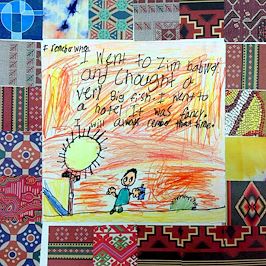 I remeber when
I went to Zim babwe
and chought a
very Big fish. I went to
a hotel It was fancy.
I will always remeber that time.